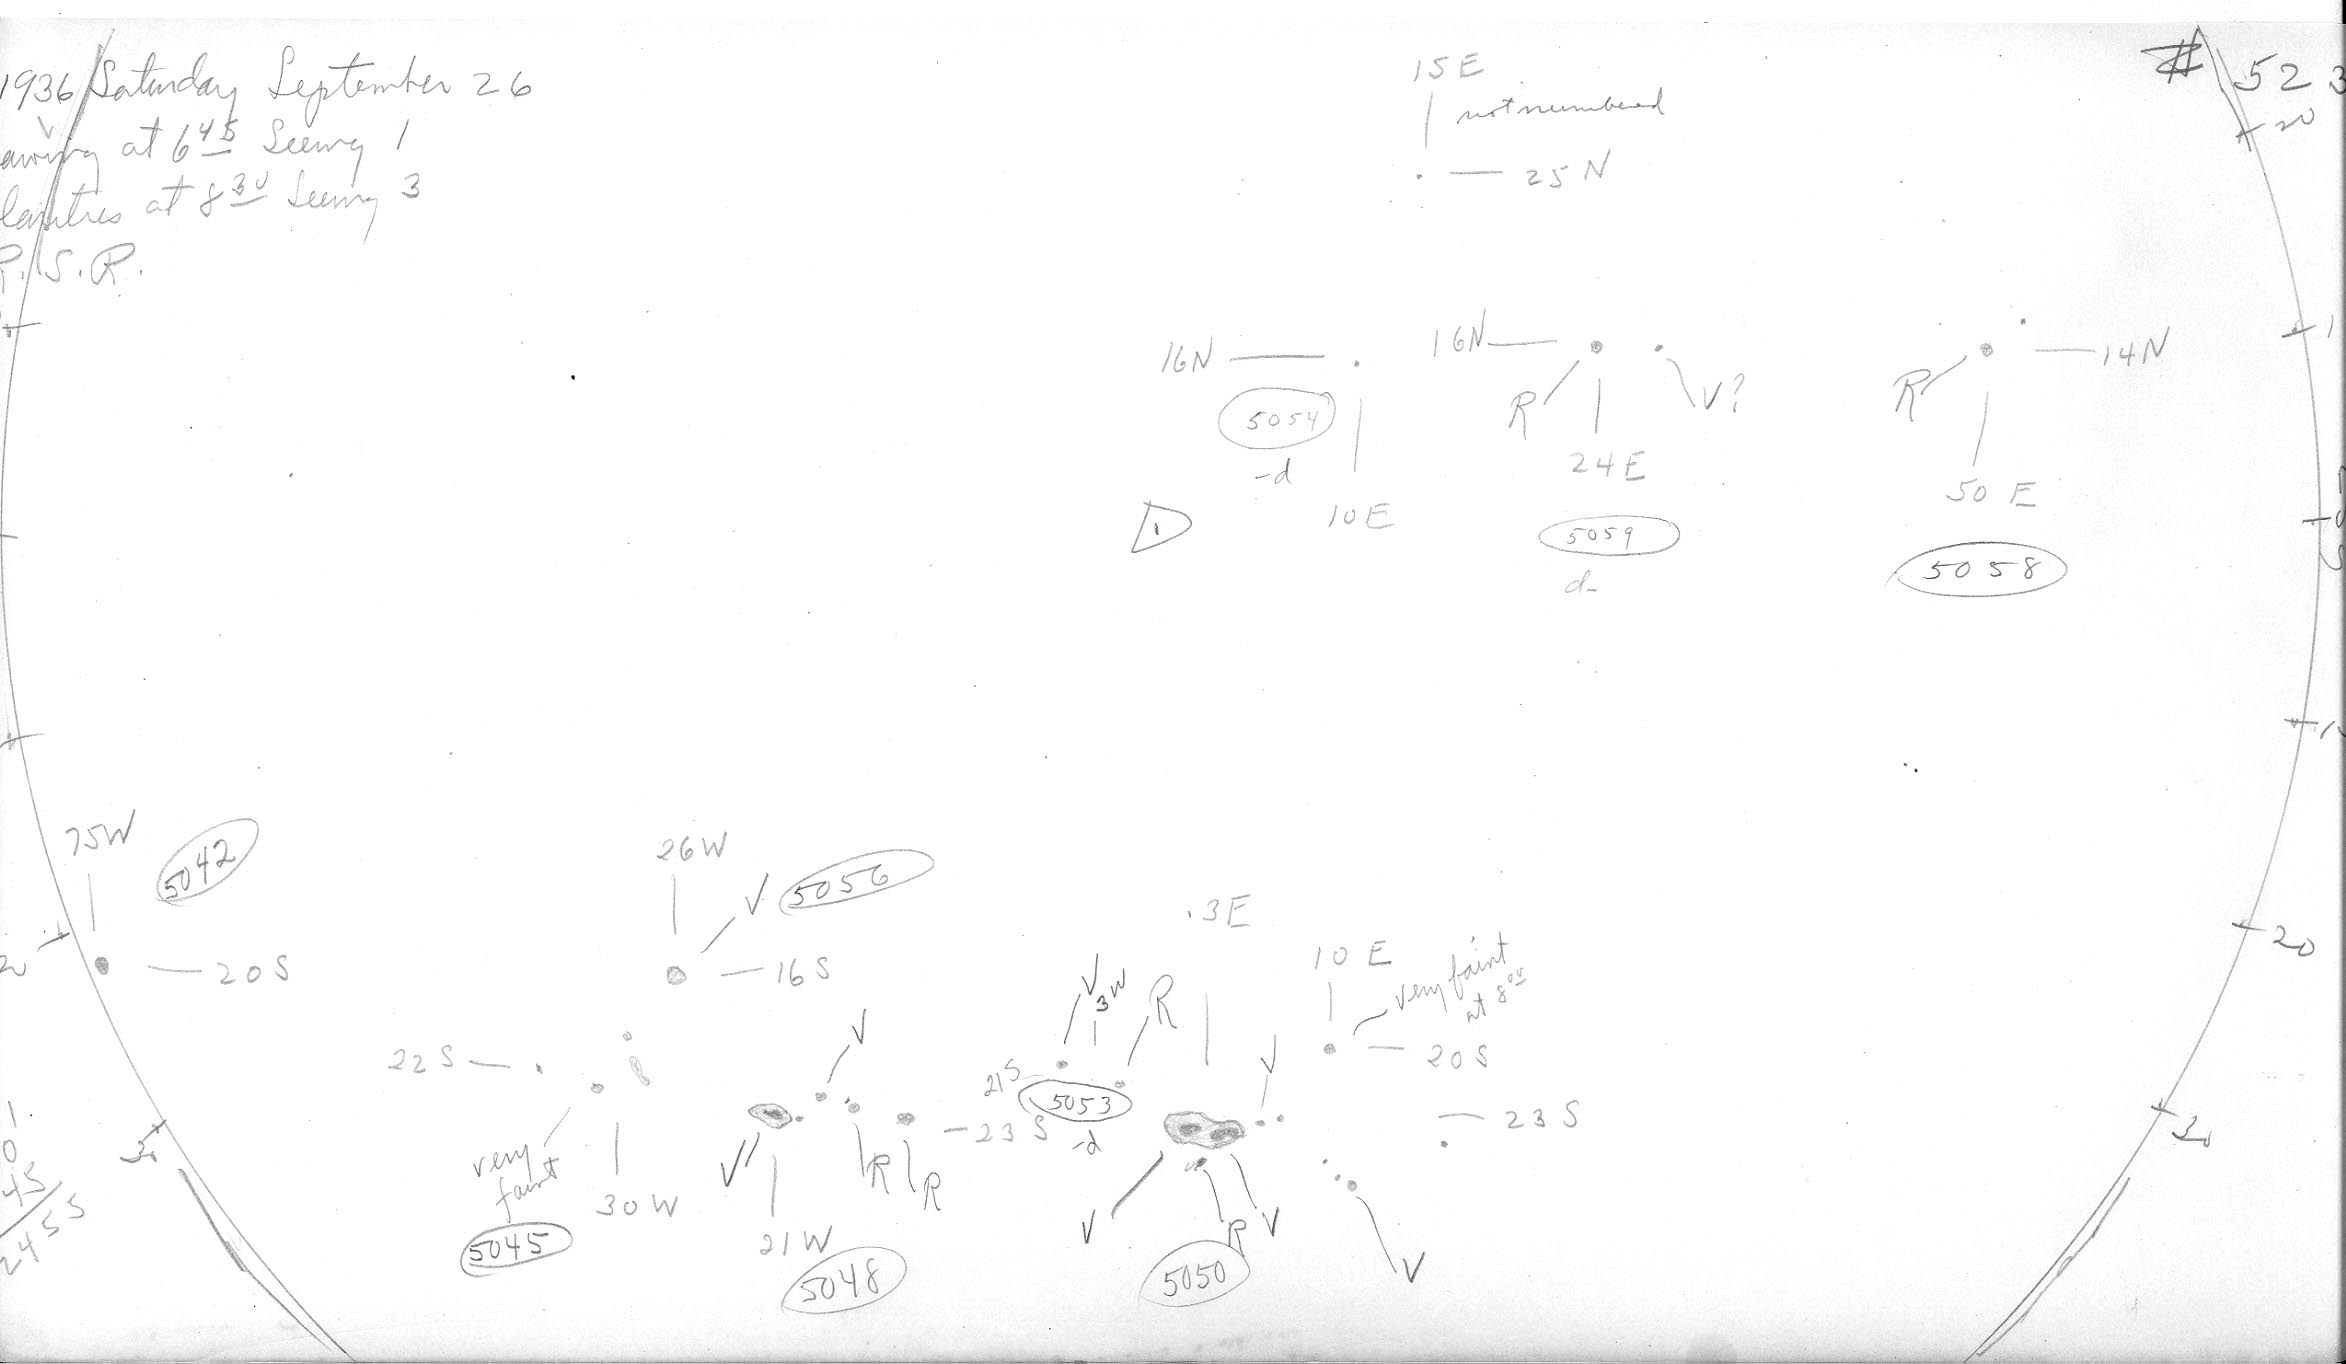 1936 Saturday September 26
awing at 6 45 Seeing 1
larities at 8 30 Seeing 3
R. S. R.
15 E
not numbered
25 N
# 523
20
16N
5054
-d
10 E
16N
R
V?
24 E
5059
d-
14N
R
50 E
5058
1
75W
5042
20 S
20
26 W
V
5056
16 S
22 S
very
faint
30 W
5045
V
V
21 W
R
R
23 S
5048
V
3W
R
21S
5053
-d
3E
V
V
R
V
5050
10 E
very faint
at 8 00
20 S
23 S
V
20
30
30
45
2455